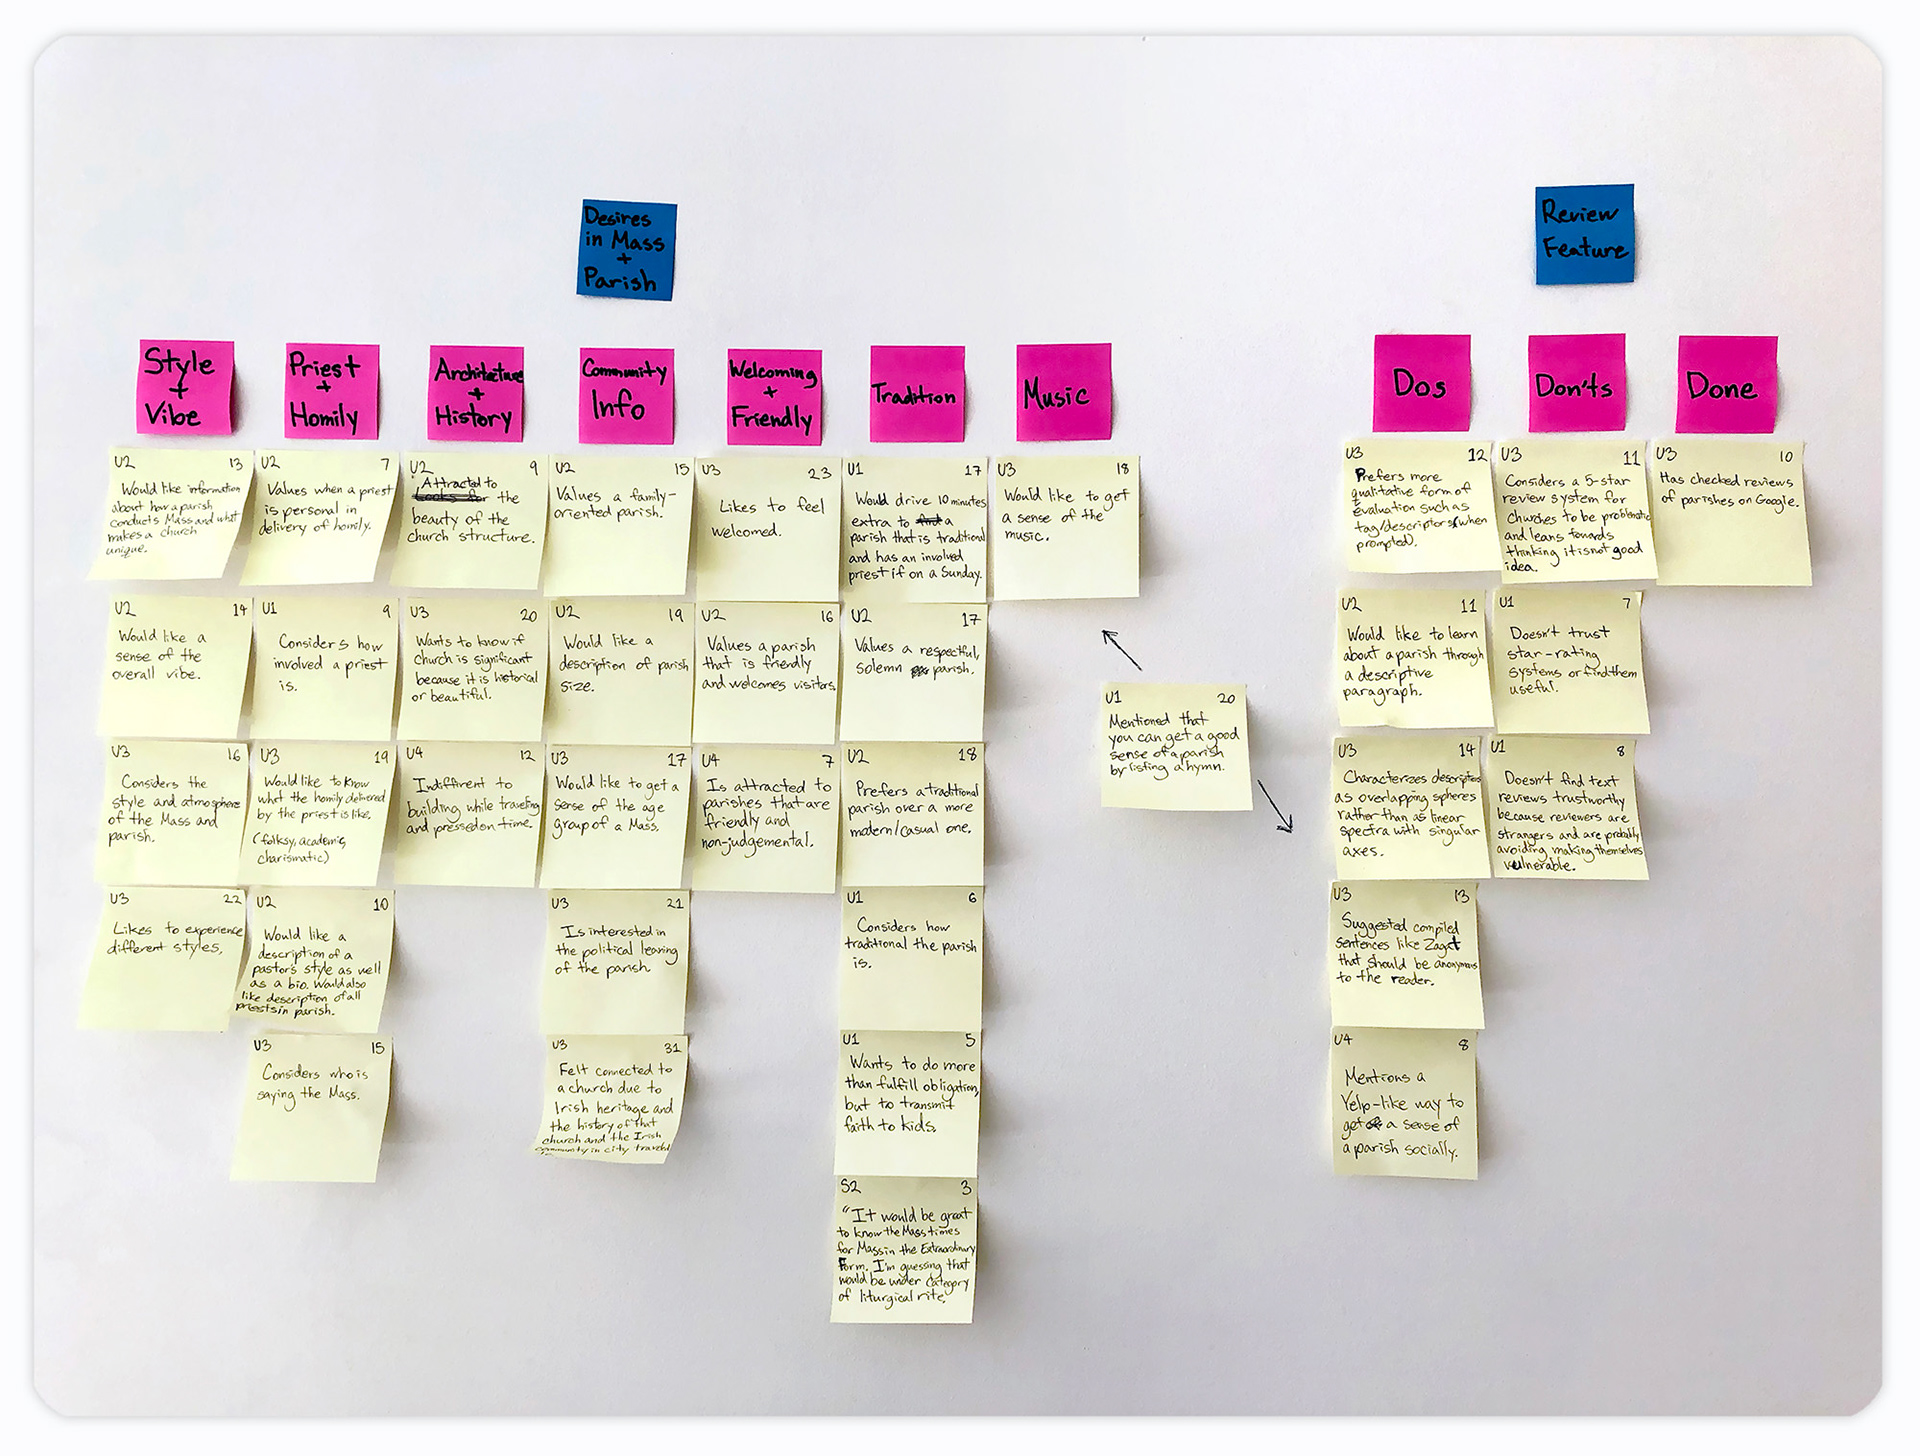 Desires
in Mass
+
Parish
Style
+
Vibe
U2 13
Would like information
about how a parish
conducts Mass and what
makes a church
unique.
U2 14
Would like a
sense of the
overall vibe.
U3 16
Considers the
style and atmosphere
of the Mass and
parish.
U3 22
Likes to experience
different styles.
Priest
+
Homily
U2 7
Values when a priest
is personal in
delivery of homily.
U1 9
Considers how
involved a priest
is.
U3 19
Would like to know
what the homily delivered
by the priest is like.
(folksy, academic,
charismatic)
U2 10
Would like a
description of a
pastor's style as well
as a bio. Would also
like description of all
priests in parish.
U3 15
Considers who is
saying the Mass.
Architecture
+
History
U2 9
Attracted to
Looks for the
beauty of the
church structure.
U3 20
Wants to know if
church is significant
because it is historical
or beautiful.
U4 12
Indiffrent to
building while traveling
and pressed on time.
Community
Info
U2 15
Values a family-
oriented parish.
U2 19
Would like a
description of parish
size.
U3 17
Would like to get a
sense of the age
group of a Mass.
U3 21
Is interested in
the political leaning
of the parish.
U3 31
Felt connected to
a church due to
Irish heritage and
the history of that
church and the Irish
community in city traveled
to.
Welcoming
+
Friendly
U3 23
Likes to feel
welcomed.
U2 16
Values a parish
that is friendly
and welcomes visitors.
U4 7
Is attracted to
parishes that are
friendly and
non-judgemental.
Tradition
U1 17
Would drive 10 minutes
extra to find a
parish that is traditional
and has an involved
priest if on a Sunday.
U2 17
Values a respectful,
solemn parish.
U2 18
Prefers a traditional
parish over a more
modern/casual one.
U1 6
Considers how
traditional the parish
is.
U1 5
Wants to do more
than fulfill obligation,
but to transmit
faith to kids.
S2 3
"It would be great
to know the Mass times
for Mass in the Extraordinary
Form. I'm guessing that
would be under Category
of liturgical rite."
Music
U3 18
Would like to get
a sense of the
music.
U1 20
Mentioned that
you can get a good
sense of a parish
by listing a hymn.
Review
Feature
Dos
U3 12
Prefers more
qualitative form of
evaluation such as
tag/descriptors (when
prompted).
U2 11
Would like to learn
about a parish through
a descriptive
paragraph.
U3 14
Characterizes descriptors
as overlapping spheres
rather than as linear
spectra with singular
axes.
U3 13
Suggested compiled
sentences like Zagat
that should be anonymous
to the reader.
U4 8
Mentions a
Yelp-like way to
get a sense of
a parish socially.
Don'ts
U3 11
Considers a 5-star
review system for
Churches to be problematic
and leans towards
thinking it is not good
idea.
U1 7
Doesn't trust
star-rating
systems or find them
useful.
U1 8
Doesn't find text
reviews trustworthy
because reviewers are
strangers and are probably
avoiding making themselves
vulnerable.
Done
U3 10
Has checked reviews
of parishes on Google.